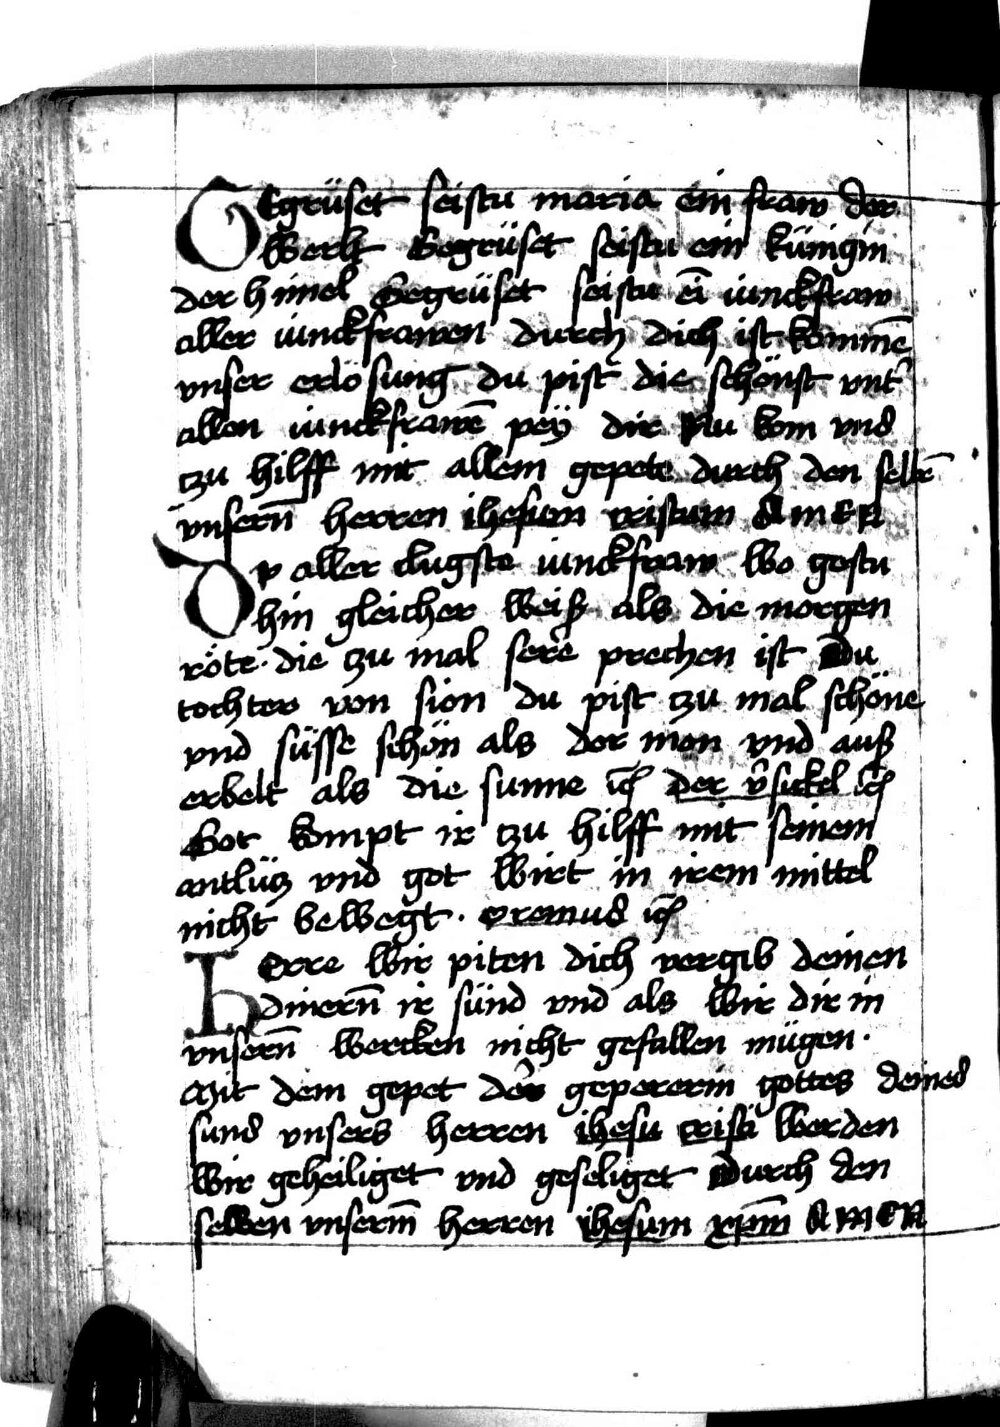 Gegrüset seistu maria ein fraw der
werlt Gegrüset seistu ein künigin
der himel Gegrüset seistu eī iunckfraw
aller iunckfrawen durch dich ist kommē
vnser erlosung du pist die schönst vnt͛
allen iunckfrawē pey dir Nu kom vns
tzu hilff mit allem gepete durch den selbē
vnsern̄ herren ihesum cristum AMEN
Dv aller clugste iunckfraw wo gestu
hin gleicher weiß als die morgen
röte · die tzu mal sere prechen ist Du
tochter von sion du pist tzu mal schöne
vnd süsse schön als der mon vnd auß
erbelt als die sunne der v͛sickel
Got kompt ir tzu hilff mit seinem
antlütz vnd got wirt in irem mittel
nicht bewegt · oremus
Herre wir piten dich vergib deinen
dinern̄ ir sünd vnd als wir dir in
vnsern̄ wercken nicht gefallen mügen ·
Mit dem gepet der gepererin gottes deines
suns vnsers herren ihesu cristi werden
wir geheiliget vnd geseliget Durch den
selben vnserm̄ herren ihesum xpm̄ AMEN